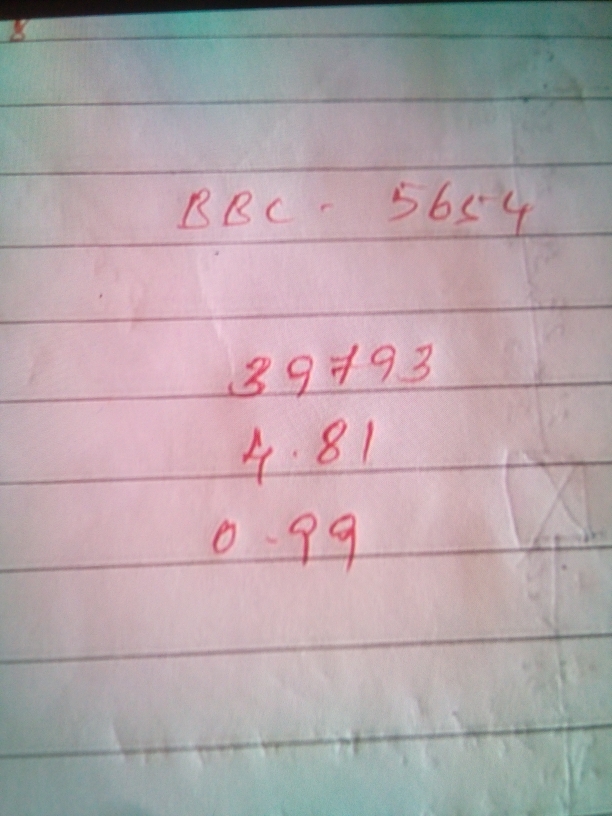 BBC - 5654
39793
4.81
0.99